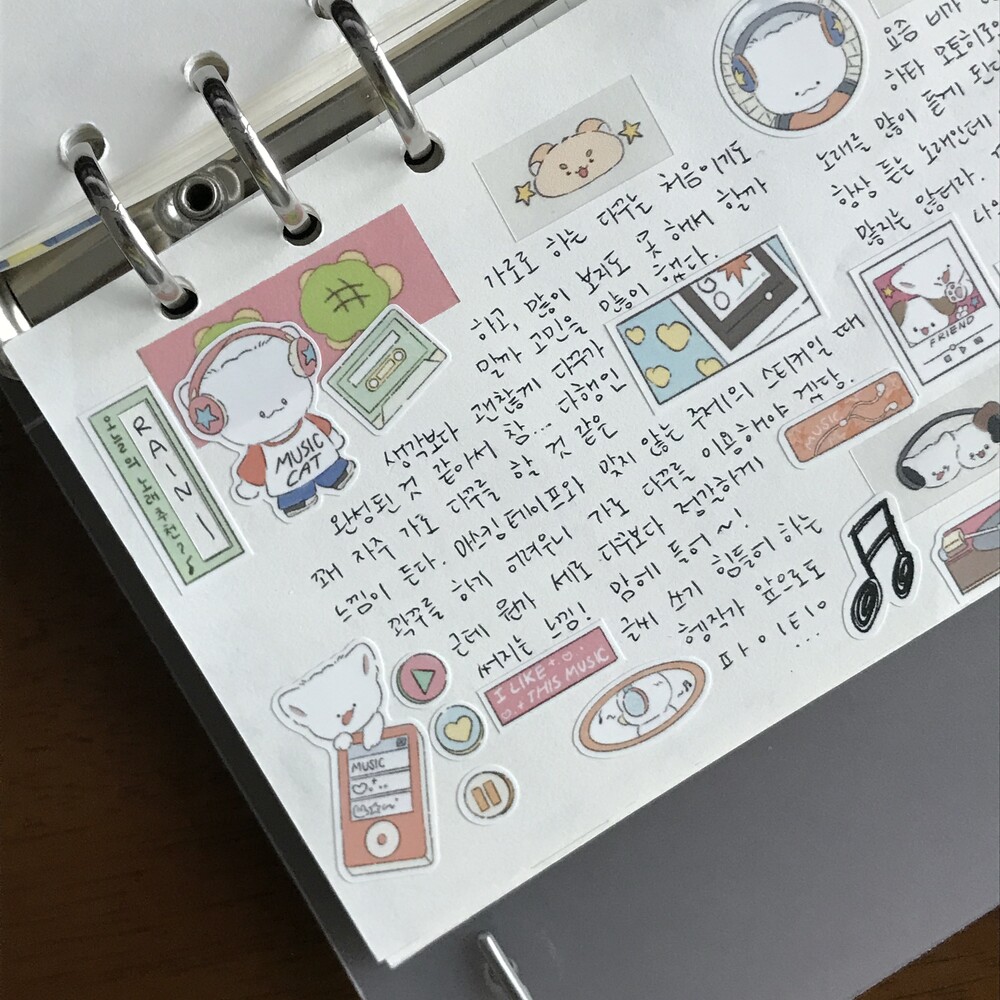 가로로 하는 다꾸는 처음이기도
하고, 많이 보지도 못 해서 할까
말까 고민을 많이 했다.
생각보다 괜찮게 다꾸가
완성된 것 같아서 참... 다행인
꽤 자주 가로 다꾸를 할 것 같은
느낌이 든다. 마스킹테이프와 맞지 않는 주제의 스티커일 때
꽉꾸를 하기 어려우니 가로 다꾸를 이용해야 겠당.
근데 뭔가 세로 다꾸보다 정갈하게
써지는 느낌! 맘에 들어~!
글씨 쓰기 힘들어 하는
형작가 앞으로도
파 이 티 ㅇ...
요즘 비가
하타 모토히로
노래를 많이 듣게 된다
항상 듣는 노래인데
많지는 않더라.
오늘의 노래 추천?
RAINI
MUSIC
CAT
FRIEND
MUSIC
I LIKE
THIS MUSIC
MUSIC